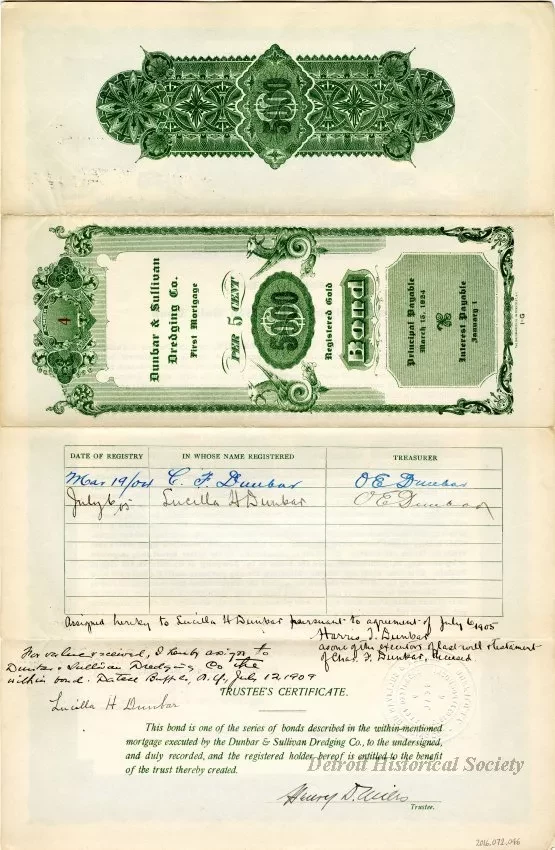 5000
4
Dunbar & Sullivan
Dredging Co.
First Mortgage
PER 5 CENT
5000
Registered Gold
Bond
Principal Payable
March 15, 1924
Interest Payable
January 1
DATE OF REGISTRY IN WHOSE NAME REGISTERED TREASURER
Mar 19/04 C. F. Dunbar O E Dunbar
July 6/05 Lucilla H Dunbar O E Dunbar
Assigned hereby to Lucilla H Dunbar pursuant to agreement of July 6 1905
Harris T. Dunbar
as one of the executors of last will & testament
of Chas. F. Dunbar, deceased
For value received, I hereby assign to
Dunbar & Sullivan Dredging Co the
within bond. Dated Buffalo, N.Y, July 12 1909
Lucilla H Dunbar
TRUSTEE'S CERTIFICATE.
This bond is one of the series of bonds described in the within-mentioned
mortgage executed by the Dunbar & Sullivan Dredging Co., to the undersigned,
and duly recorded, and the registered holder hereof is entitled to the benefit
of the trust thereby created.
Detroit Historical Society
Henry D.
Trustee.
2016.072.046